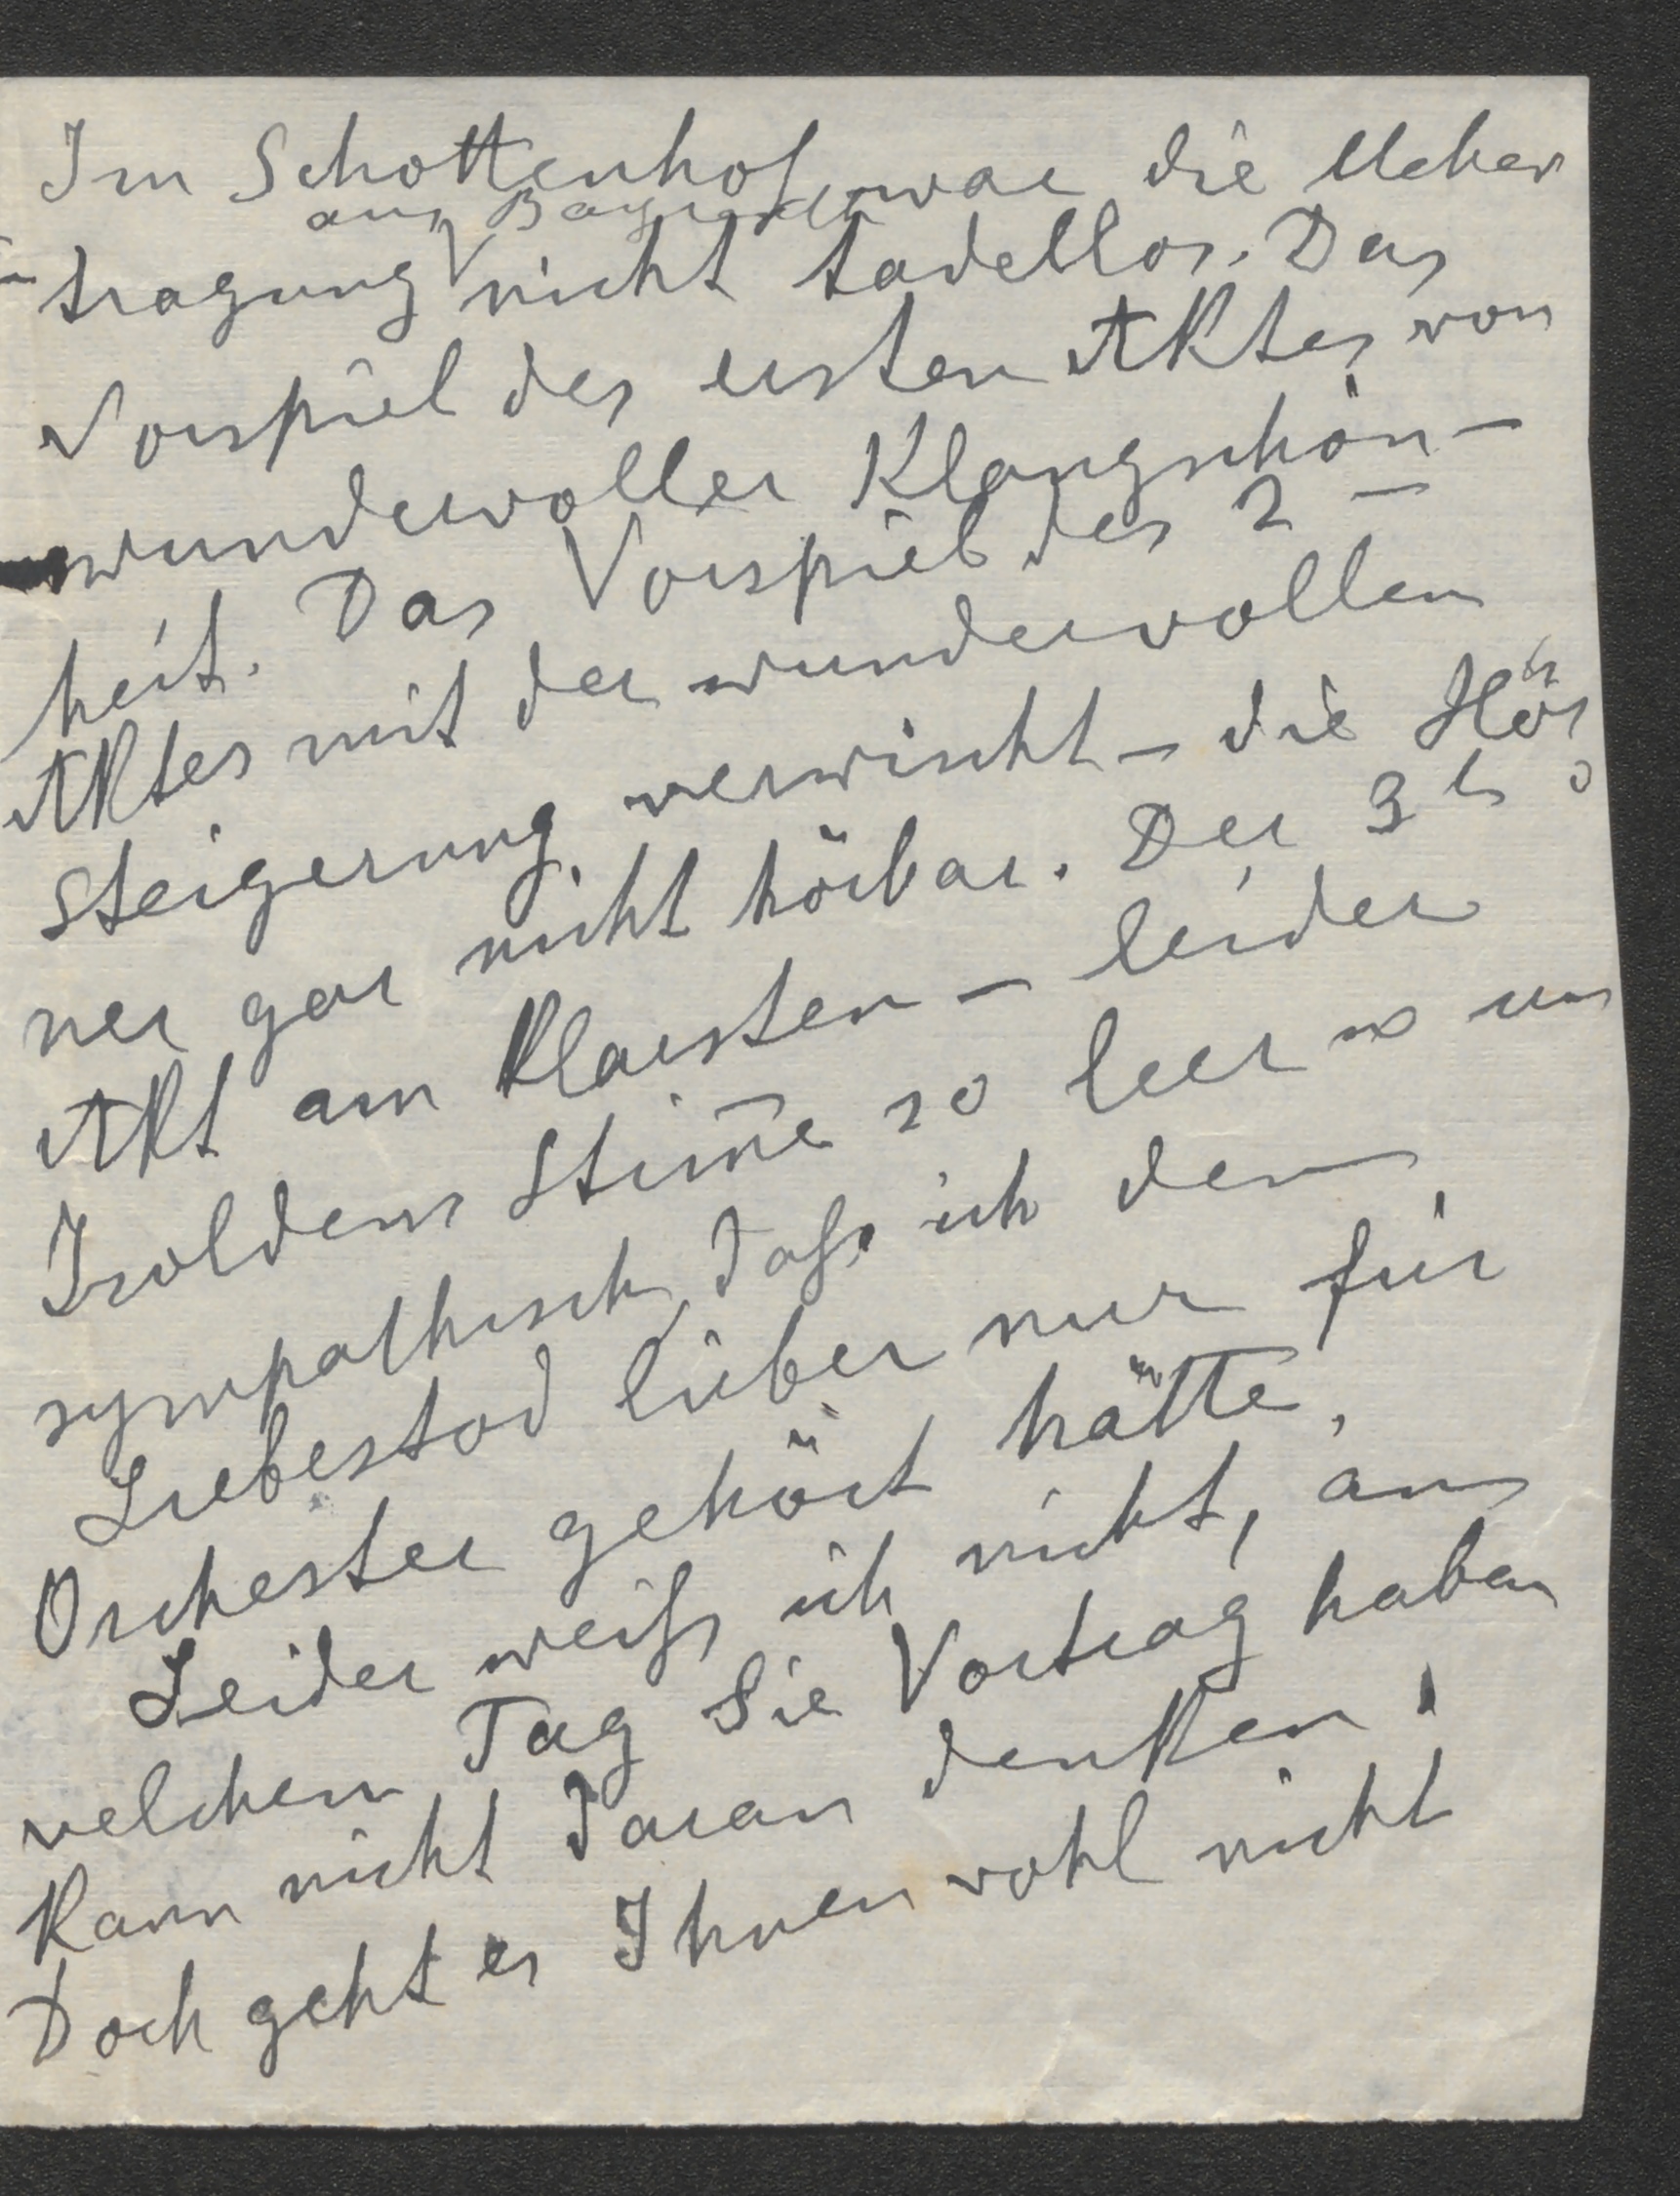 Im Schottenhof war die Ueber
aus Bayreuth
tragung nicht tadellos. Das
Vorspiel des ersten Aktes von
wundervoller Klangschön-
heit. Das Vorspiel des 2 –
Aktes mit der wundervollen
Steigerung, verwischt – die Hör
ner gar nicht hörbar. Der 3te
Akt am klarsten – leider
Isoldens Stim̄e so leer u un
sympathisch, dass ich den
Liebestod lieber nur für
Orchester gehört hätte.
Leider weiß ich nicht, an
welchem Tag Sie Vortrag haben
Kann nicht daran denken!
Doch geht es Ihnen wohl nicht